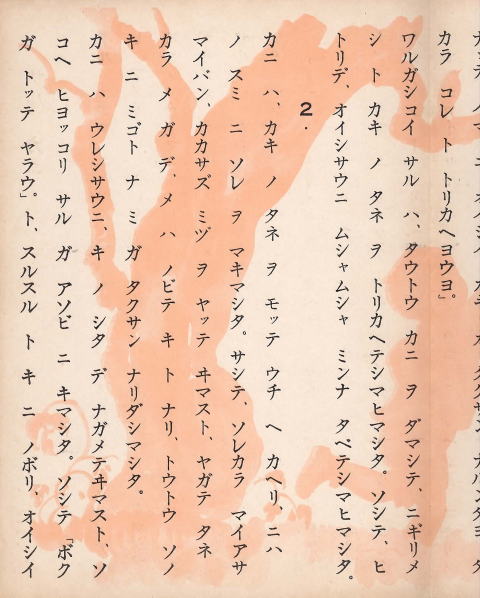 カラ コレ ト トリカヘヨウヨ」。
ワルガシコイ サル ハ、タウトウ カニ ヲ ダマシテ、ニギリメ
シ ト カキ ノ タネ ヲ トリカヘテシマヒマシタ。ソシテ、ヒ
トリデ、オイシサウニ ムシャムシャ ミンナ タベテシマヒマシタ。
2.
カニ ハ、カキ ノ タネ ヲ モッテ ウチ ヘ カヘリ、ニハ
ノ スミ ニ ソレ ヲ マキマシタ。サシテ、ソレカラ マイアサ
マイバン、カカサズ ミヅ ヲ ヤッテ ヰマスト、ヤガテ タネ
カラ メ ガ デ、メ ハ ノビテ キ ト ナリ、トウトウ ソノ
キ ニ ミゴト ナ ミ ガ タクサン ナリダシマシタ。
カニ ハ ウレシサウニ、キ ノ シタ デ ナガメテヰマスト、ソ
コヘ ヒヨッコリ サル ガ アソビ ニ キマシタ。ソシテ「ボク
ガ トッテ ヤラウ」。ト、スルスル ト キ ニ ノボリ、オイシイ